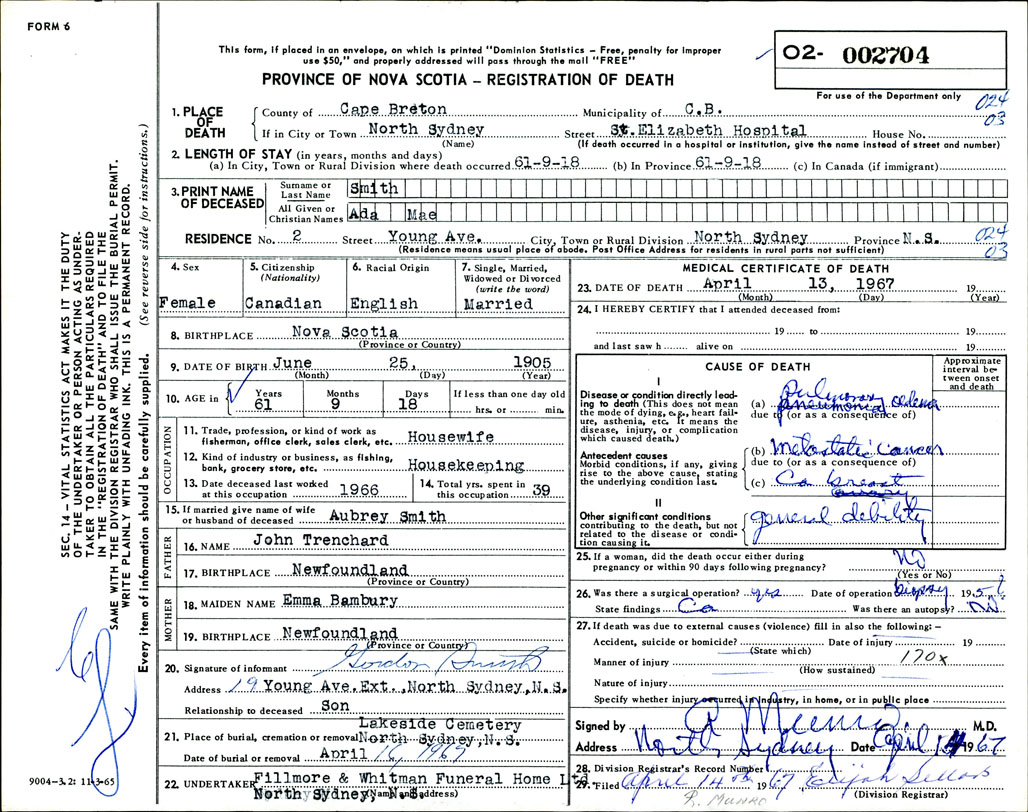 FORM 6
This form, if placed in an envelope, on which is printed "Dominion Statistics – Free, penalty for improper
use $50," and properly addressed will pass through the mail "FREE"
PROVINCE OF NOVA SCOTIA – REGISTRATION OF DEATH
02- 002704
For use of the Department only
024
03
1. PLACE OF DEATH
County of Cape Breton Municipality of C.B.
If in City or Town North Sydney Street St.Elizabeth Hospital House No.
(Name) (If death occurred in a hospital or institution, give the name instead of street and number)
2. LENGTH OF STAY (in years, months and days)
(a) In City, Town or Rural Division where death occurred 61-9-18 (b) In Province 61-9-18 (c) In Canada (if immigrant)
3. PRINT NAME OF DECEASED
Surname or Last Name Smith
All Given or Christian Names Ada Mae
RESIDENCE No. 2 Street Young Ave. City, Town or Rural Division North Sydney Province N.S.
024
03
(Residence means usual place of abode. Post Office Address for residents in rural parts not sufficient)
4. Sex
Female
5. Citizenship
(Nationality)
Canadian
6. Racial Origin
English
7. Single, Married,
Widowed or Divorced
(write the word)
Married
8. BIRTHPLACE Nova Scotia
(Province or Country)
9. DATE OF BIRTH June 25, 1905
(Month) (Day) (Year)
10. AGE in
Years Months Days If less than one day old
61 9 18 hrs. or min.
OCCUPATION
11. Trade, profession, or kind of work as
fisherman, office clerk, sales clerk, etc. Housewife
12. Kind of industry or business, as fishing,
bank, grocery store, etc. Housekeeping
13. Date deceased last worked
at this occupation 1966
14. Total yrs. spent in
this occupation 39
15. If married give name of wife
or husband of deceased Aubrey Smith
FATHER
16. NAME John Trenchard
17. BIRTHPLACE Newfoundland
(Province or Country)
MOTHER
18. MAIDEN NAME Emma Bambury
19. BIRTHPLACE Newfoundland
(Province or Country)
20. Signature of informant Gordon Smith
Address 19 Young Ave.Ext.,North Sydney,N.S.
Relationship to deceased Son
Lakeside Cemetery
21. Place of burial, cremation or removal North Sydney,N.S.
Date of burial or removal April 16, 1967
22. UNDERTAKER Fillmore & Whitman Funeral Home Ltd
North Sydney, N.S.
(Name and address)
MEDICAL CERTIFICATE OF DEATH
23. DATE OF DEATH April 13, 1967 19
(Month) (Day) (Year)
24. I HEREBY CERTIFY that I attended deceased from:
19 to 19
and last saw h alive on 19
CAUSE OF DEATH
Approximate
interval be-
tween onset
and death
I
Disease or condition directly lead-
ing to death (This does not mean
the mode of dying, e.g., heart fail-
ure, asthenia, etc. It means the
disease, injury, or complication
which caused death.)
(a) Pulmonary pneumonia edema
due to (or as a consequence of)
Antecedent causes
Morbid conditions, if any, giving
rise to the above cause, stating
the underlying condition last.
(b) Metastatic Cancer
due to (or as a consequence of)
(c) Ca breast
II
Other significant conditions
contributing to the death, but not
related to the disease or condi-
tion causing it.
general debility
25. If a woman, did the death occur either during
pregnancy or within 90 days following pregnancy? No
(Yes or No)
26. Was there a surgical operation? yes Date of operation biopsy 195
State findings Ca Was there an autopsy? No
27. If death was due to external causes (violence) fill in also the following: –
Accident, suicide or homicide? Date of injury 19
(State which)
170x
Manner of injury
(How sustained)
Nature of injury
Specify whether injury occurred in industry, in home, or in public place
Signed by M.D.
Address North Sydney Date April 14 1967
28. Division Registrar's Record Number
29. Filed April 14th 1967 Elijah
(Division Registrar)
R. Munro
SEC. 14 – VITAL STATISTICS ACT MAKES IT THE DUTY
OF THE UNDERTAKER OR PERSON ACTING AS UNDER-
TAKER TO OBTAIN ALL THE PARTICULARS REQUIRED
IN THE "REGISTRATION OF DEATH" AND TO FILE THE
SAME WITH THE DIVISION REGISTRAR WHO SHALL ISSUE THE BURIAL PERMIT.
WRITE PLAINLY WITH UNFADING INK. THIS IS A PERMANENT RECORD.
Every item of information should be carefully supplied. (See reverse side for instructions.)
9004-3.2: 11-3-65